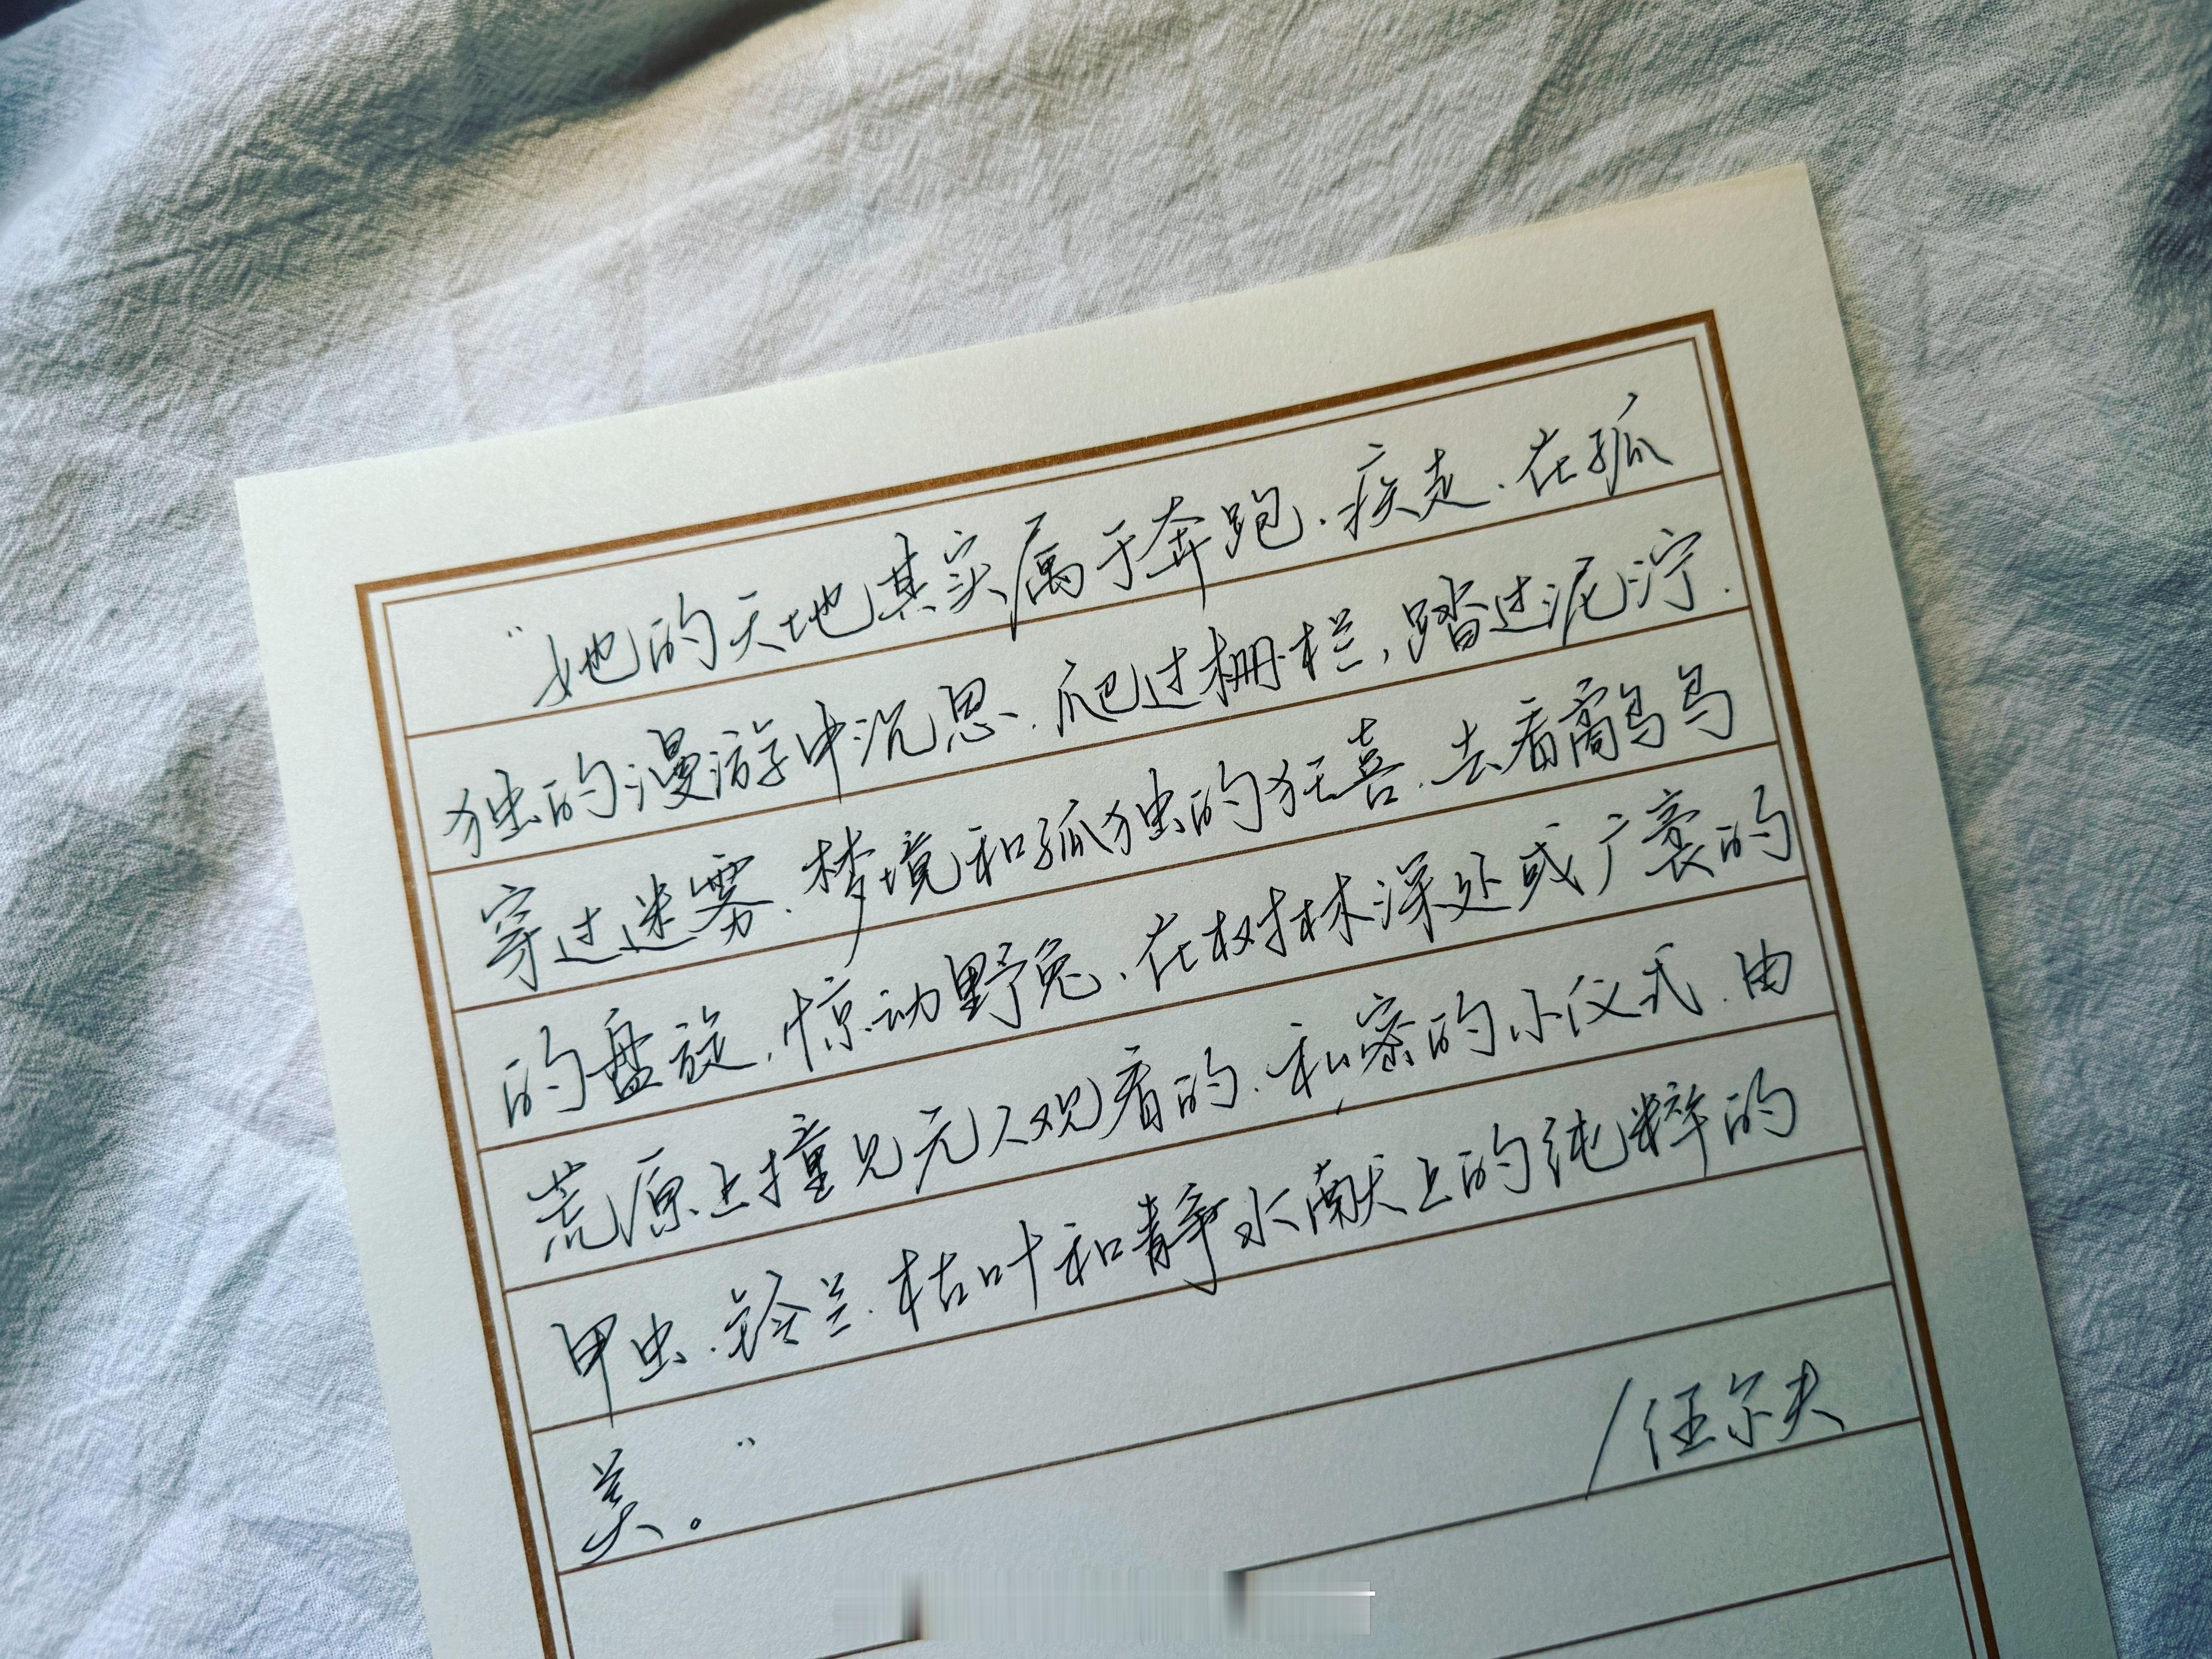 “她的天地其实属于奔跑、疾走、在孤
独的漫游中沉思、爬过栅栏，踏过泥泞、
穿过迷雾、梦境和孤独的狂喜、去看鸟
的盘旋，惊动野兔、在树林深处或广袤的
荒原上撞见无人观看的、私密的小仪式、由
甲虫、铃兰、枯叶和静水献上的纯粹的
美。”
/伍尔夫